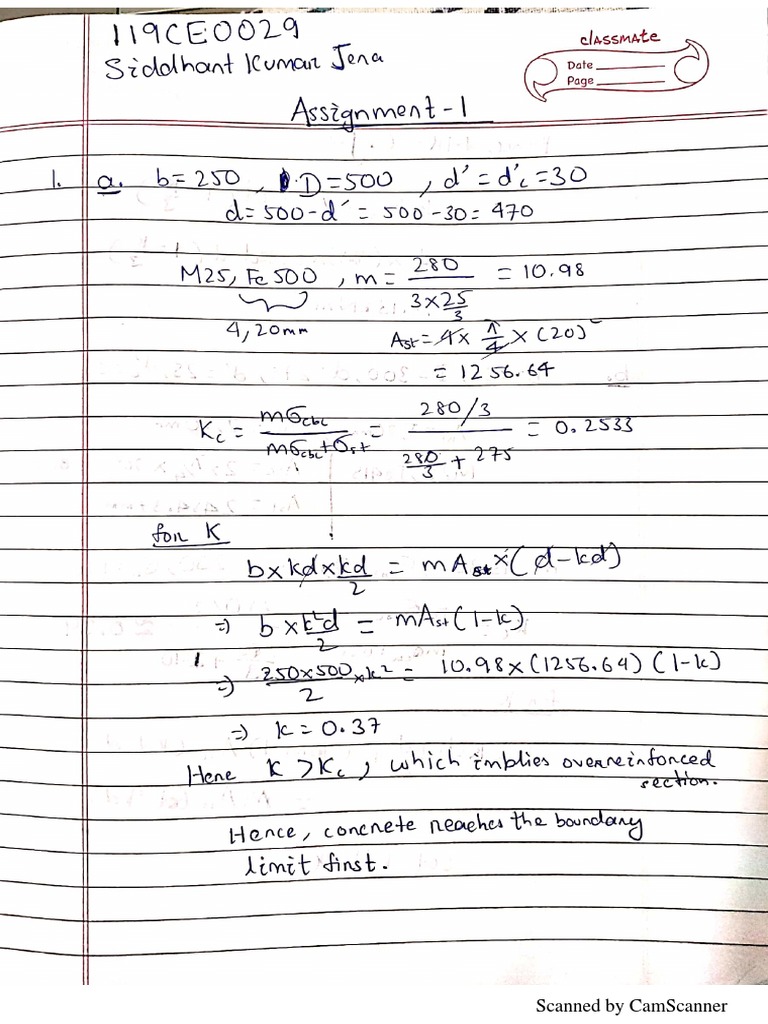 119CE0029
Siddhant Kumar Jena
classmate
Date
Page
Assignment-1
1. a. b=250, D=500, d'=d'c=30
d=500-d'=500-30=470
M25, Fe500, m= 280/(3×25/3) = 10.98
4, 20mm
Ast=4×π/4×(20)²
= 1256.64
Kc = mσcbc/(mσcbc+σst) = (280/3)/(280/3 + 275) = 0.2533
for K
b×kd×kd/2 = mAst×(d-kd)
⇒ b×k²d/2 = mAst(1-k)
⇒ 250×500/2 ×k² = 10.98×(1256.64)(1-k)
⇒ k=0.37
Here K>Kc, which implies overreinforced
section.
Hence, concrete reaches the boundary
limit first.
Scanned by CamScanner